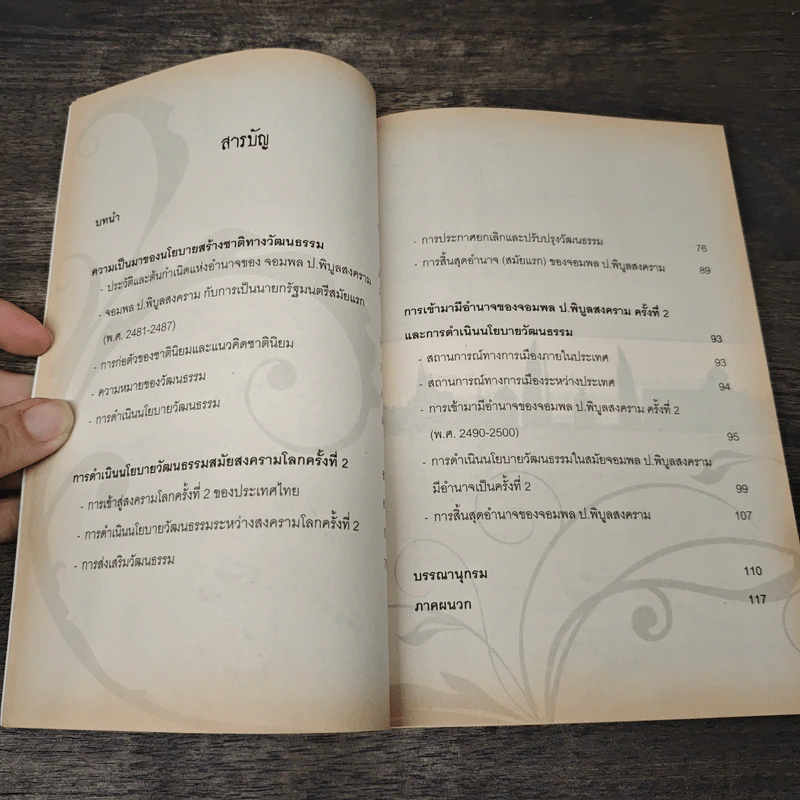 สารบัญ
บทนำ
ความเป็นมาของนโยบายสร้างชาติทางวัฒนธรรม
- ประวัติและต้นกำเนิดแห่งอำนาจของ จอมพล ป.พิบูลสงคราม
- จอมพล ป.พิบูลสงคราม กับการเป็นนายกรัฐมนตรีสมัยแรก
(พ.ศ. 2481-2487)
- การก่อตัวของชาตินิยมและแนวคิดชาตินิยม
- ความหมายของวัฒนธรรม
- การดำเนินนโยบายวัฒนธรรม
การดำเนินนโยบายวัฒนธรรมสมัยสงครามโลกครั้งที่ 2
- การเข้าสู่สงครามโลกครั้งที่ 2 ของประเทศไทย
- การดำเนินนโยบายวัฒนธรรมระหว่างสงครามโลกครั้งที่ 2
- การส่งเสริมวัฒนธรรม
- การประกาศยกเลิกและปรับปรุงวัฒนธรรม 76
- การสิ้นสุดอำนาจ (สมัยแรก) ของจอมพล ป.พิบูลสงคราม 89
การเข้ามามีอำนาจของจอมพล ป.พิบูลสงคราม ครั้งที่ 2
และการดำเนินนโยบายวัฒนธรรม 93
- สถานการณ์ทางการเมืองภายในประเทศ 93
- สถานการณ์ทางการเมืองระหว่างประเทศ 94
- การเข้ามามีอำนาจของจอมพล ป.พิบูลสงคราม ครั้งที่ 2
(พ.ศ. 2490-2500) 95
- การดำเนินนโยบายวัฒนธรรมในสมัยจอมพล ป.พิบูลสงคราม
มีอำนาจเป็นครั้งที่ 2 99
- การสิ้นสุดอำนาจของจอมพล ป.พิบูลสงคราม 107
บรรณานุกรม 110
ภาคผนวก 117